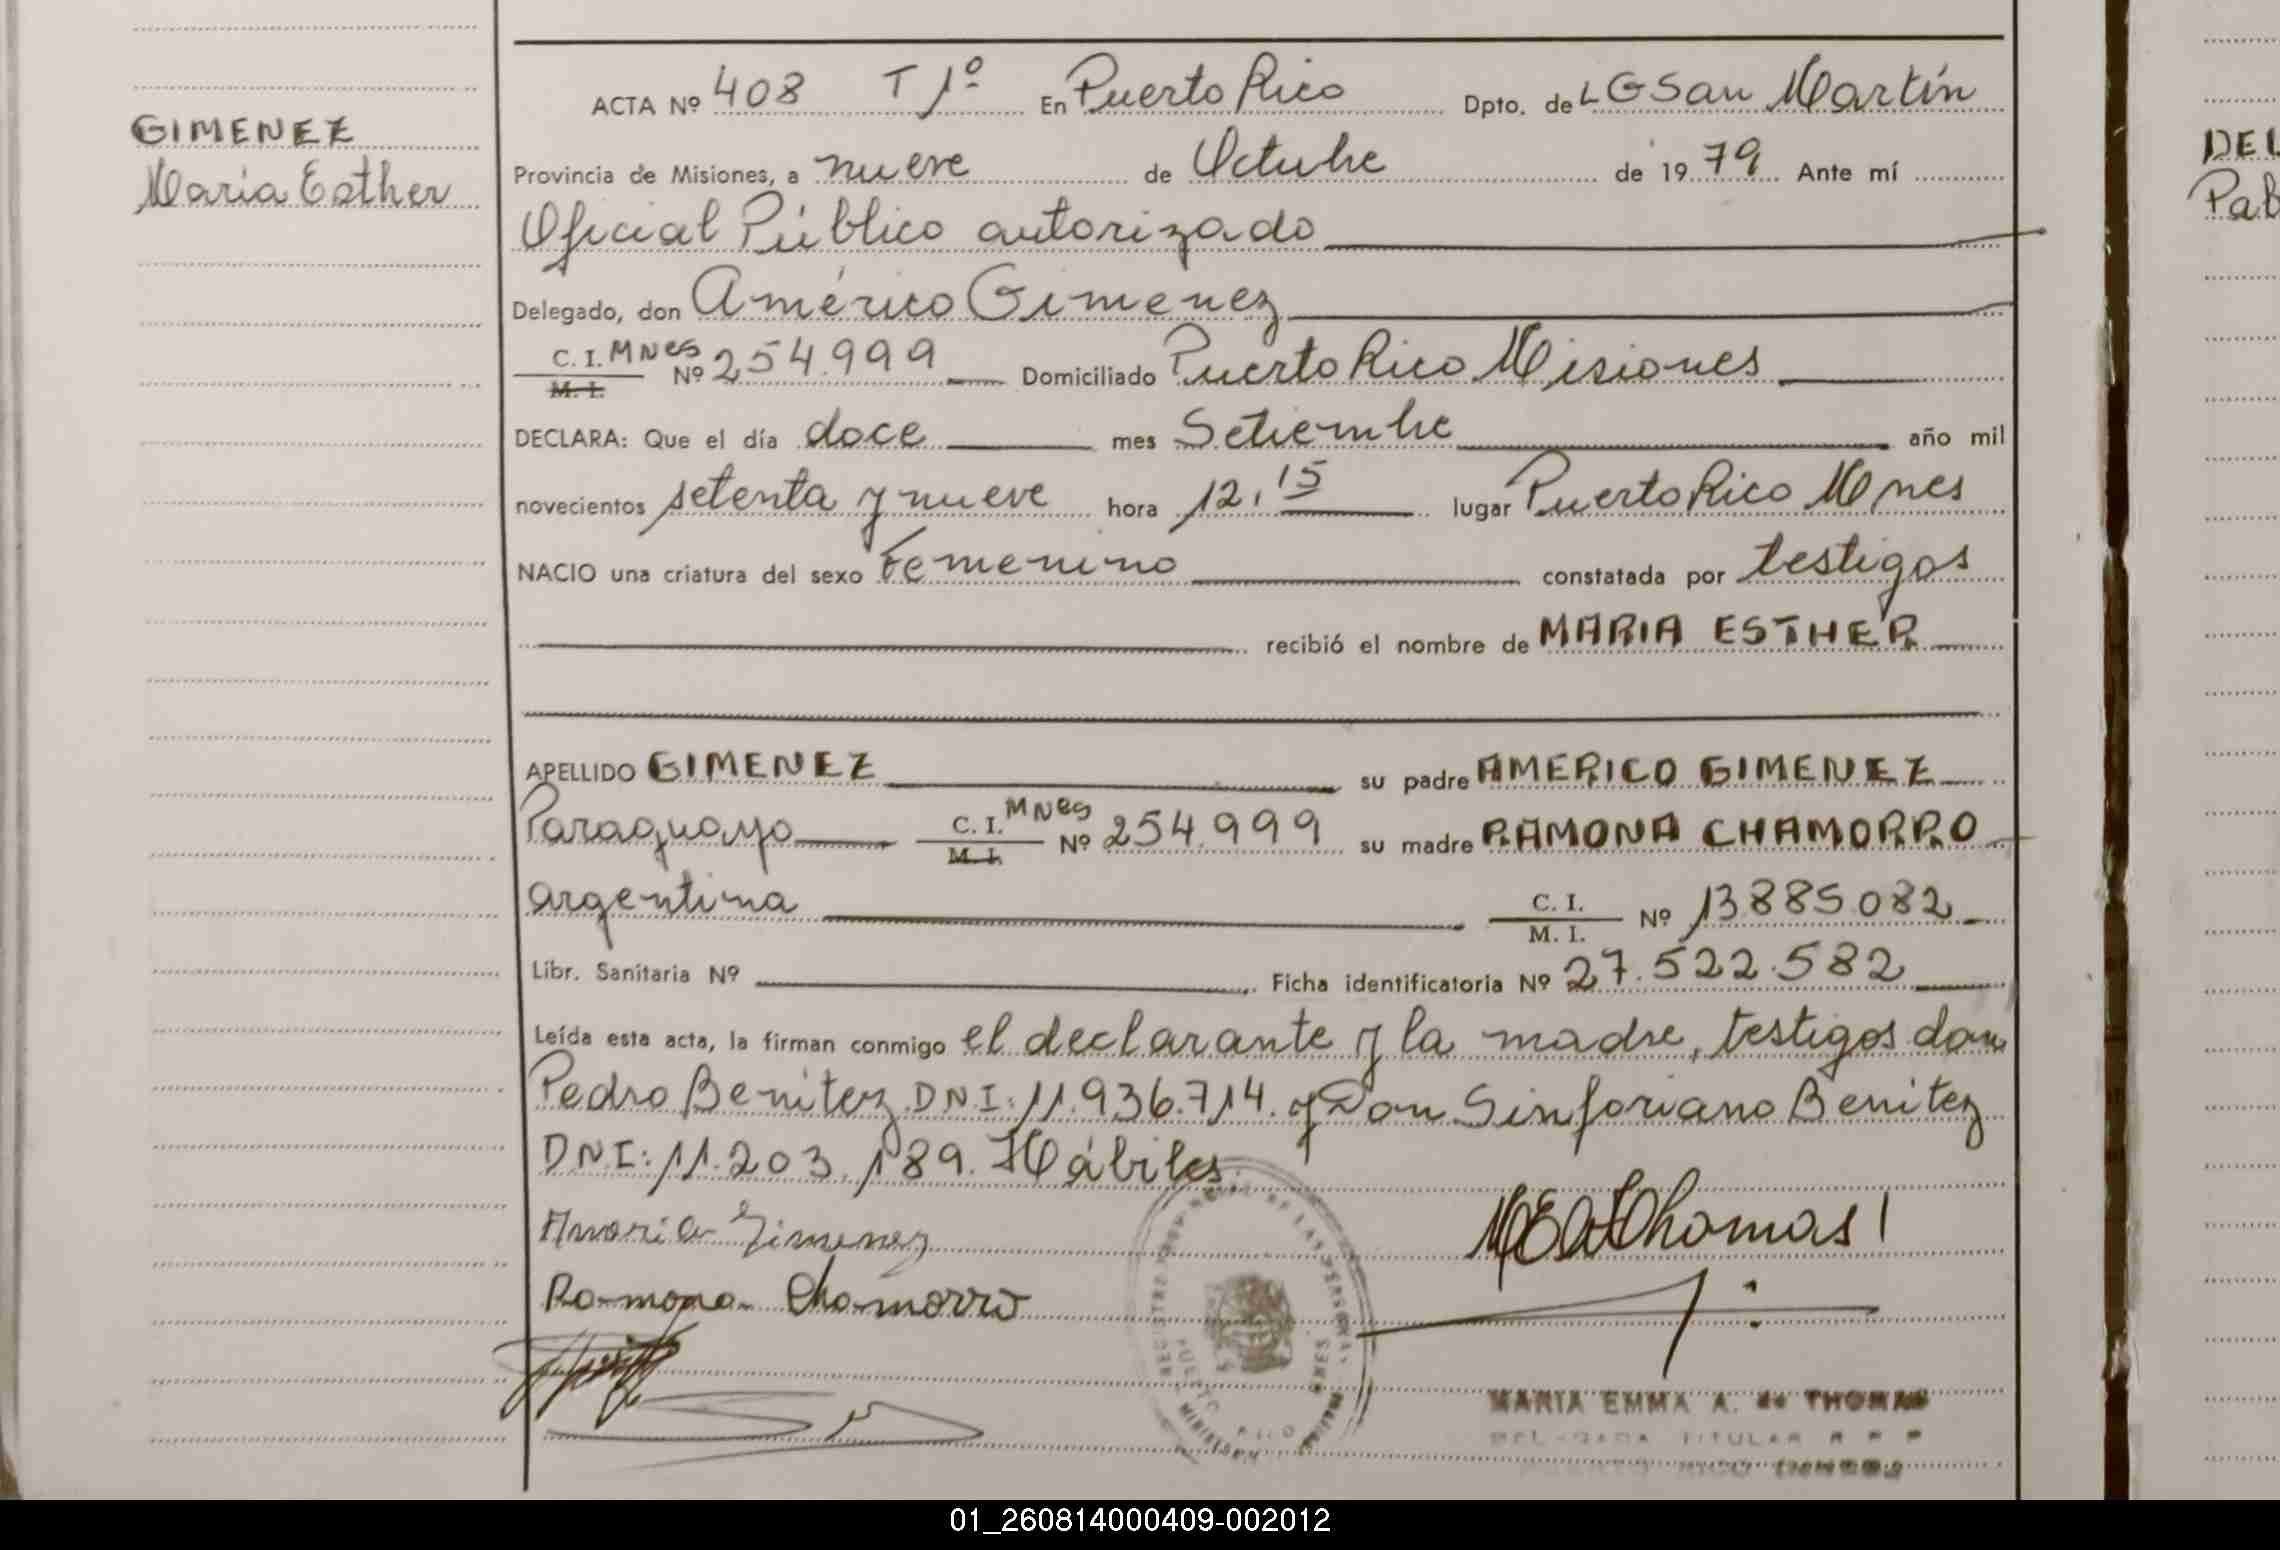 GIMENEZ
Maria Esther
ACTA Nº 408 T 1º En Puerto Rico Dpto. de LGSan Martín
Provincia de Misiones, a nueve de Octubre de 1979 Ante mí
Oficial Público autorizado
Delegado, don Américo Gimenez
C. I. MNes M. I. Nº 254.999 Domiciliado Puerto Rico Misiones
DECLARA: Que el día doce mes Setiembre año mil
novecientos setenta y nueve hora 12,15 lugar Puerto Rico Mnes
NACIO una criatura del sexo Femenino constatada por testigos
recibió el nombre de MARIA ESTHER
APELLIDO GIMENEZ su padre AMERICO GIMENEZ
Paraguayo C. I. MNes M. I. Nº 254.999 su madre RAMONA CHAMORRO
argentina C. I. M. I. Nº 13885082
Libr. Sanitaria Nº Ficha identificatoria Nº 27.522.582
Leída esta acta, la firman conmigo el declarante y la madre, testigos don
Pedro Benitez DNI: 11.936.714. y Don Sinforiano Benitez
DNI: 11.203.189. Hábiles.
Gimenez
Ramona Chamorro
MEAdThomas
MARIA EMMA A. de THOMAS
TITULAR
PUERTO RICO
DE LAS PERSONAS
DEL
Pab
01_260814000409-002012